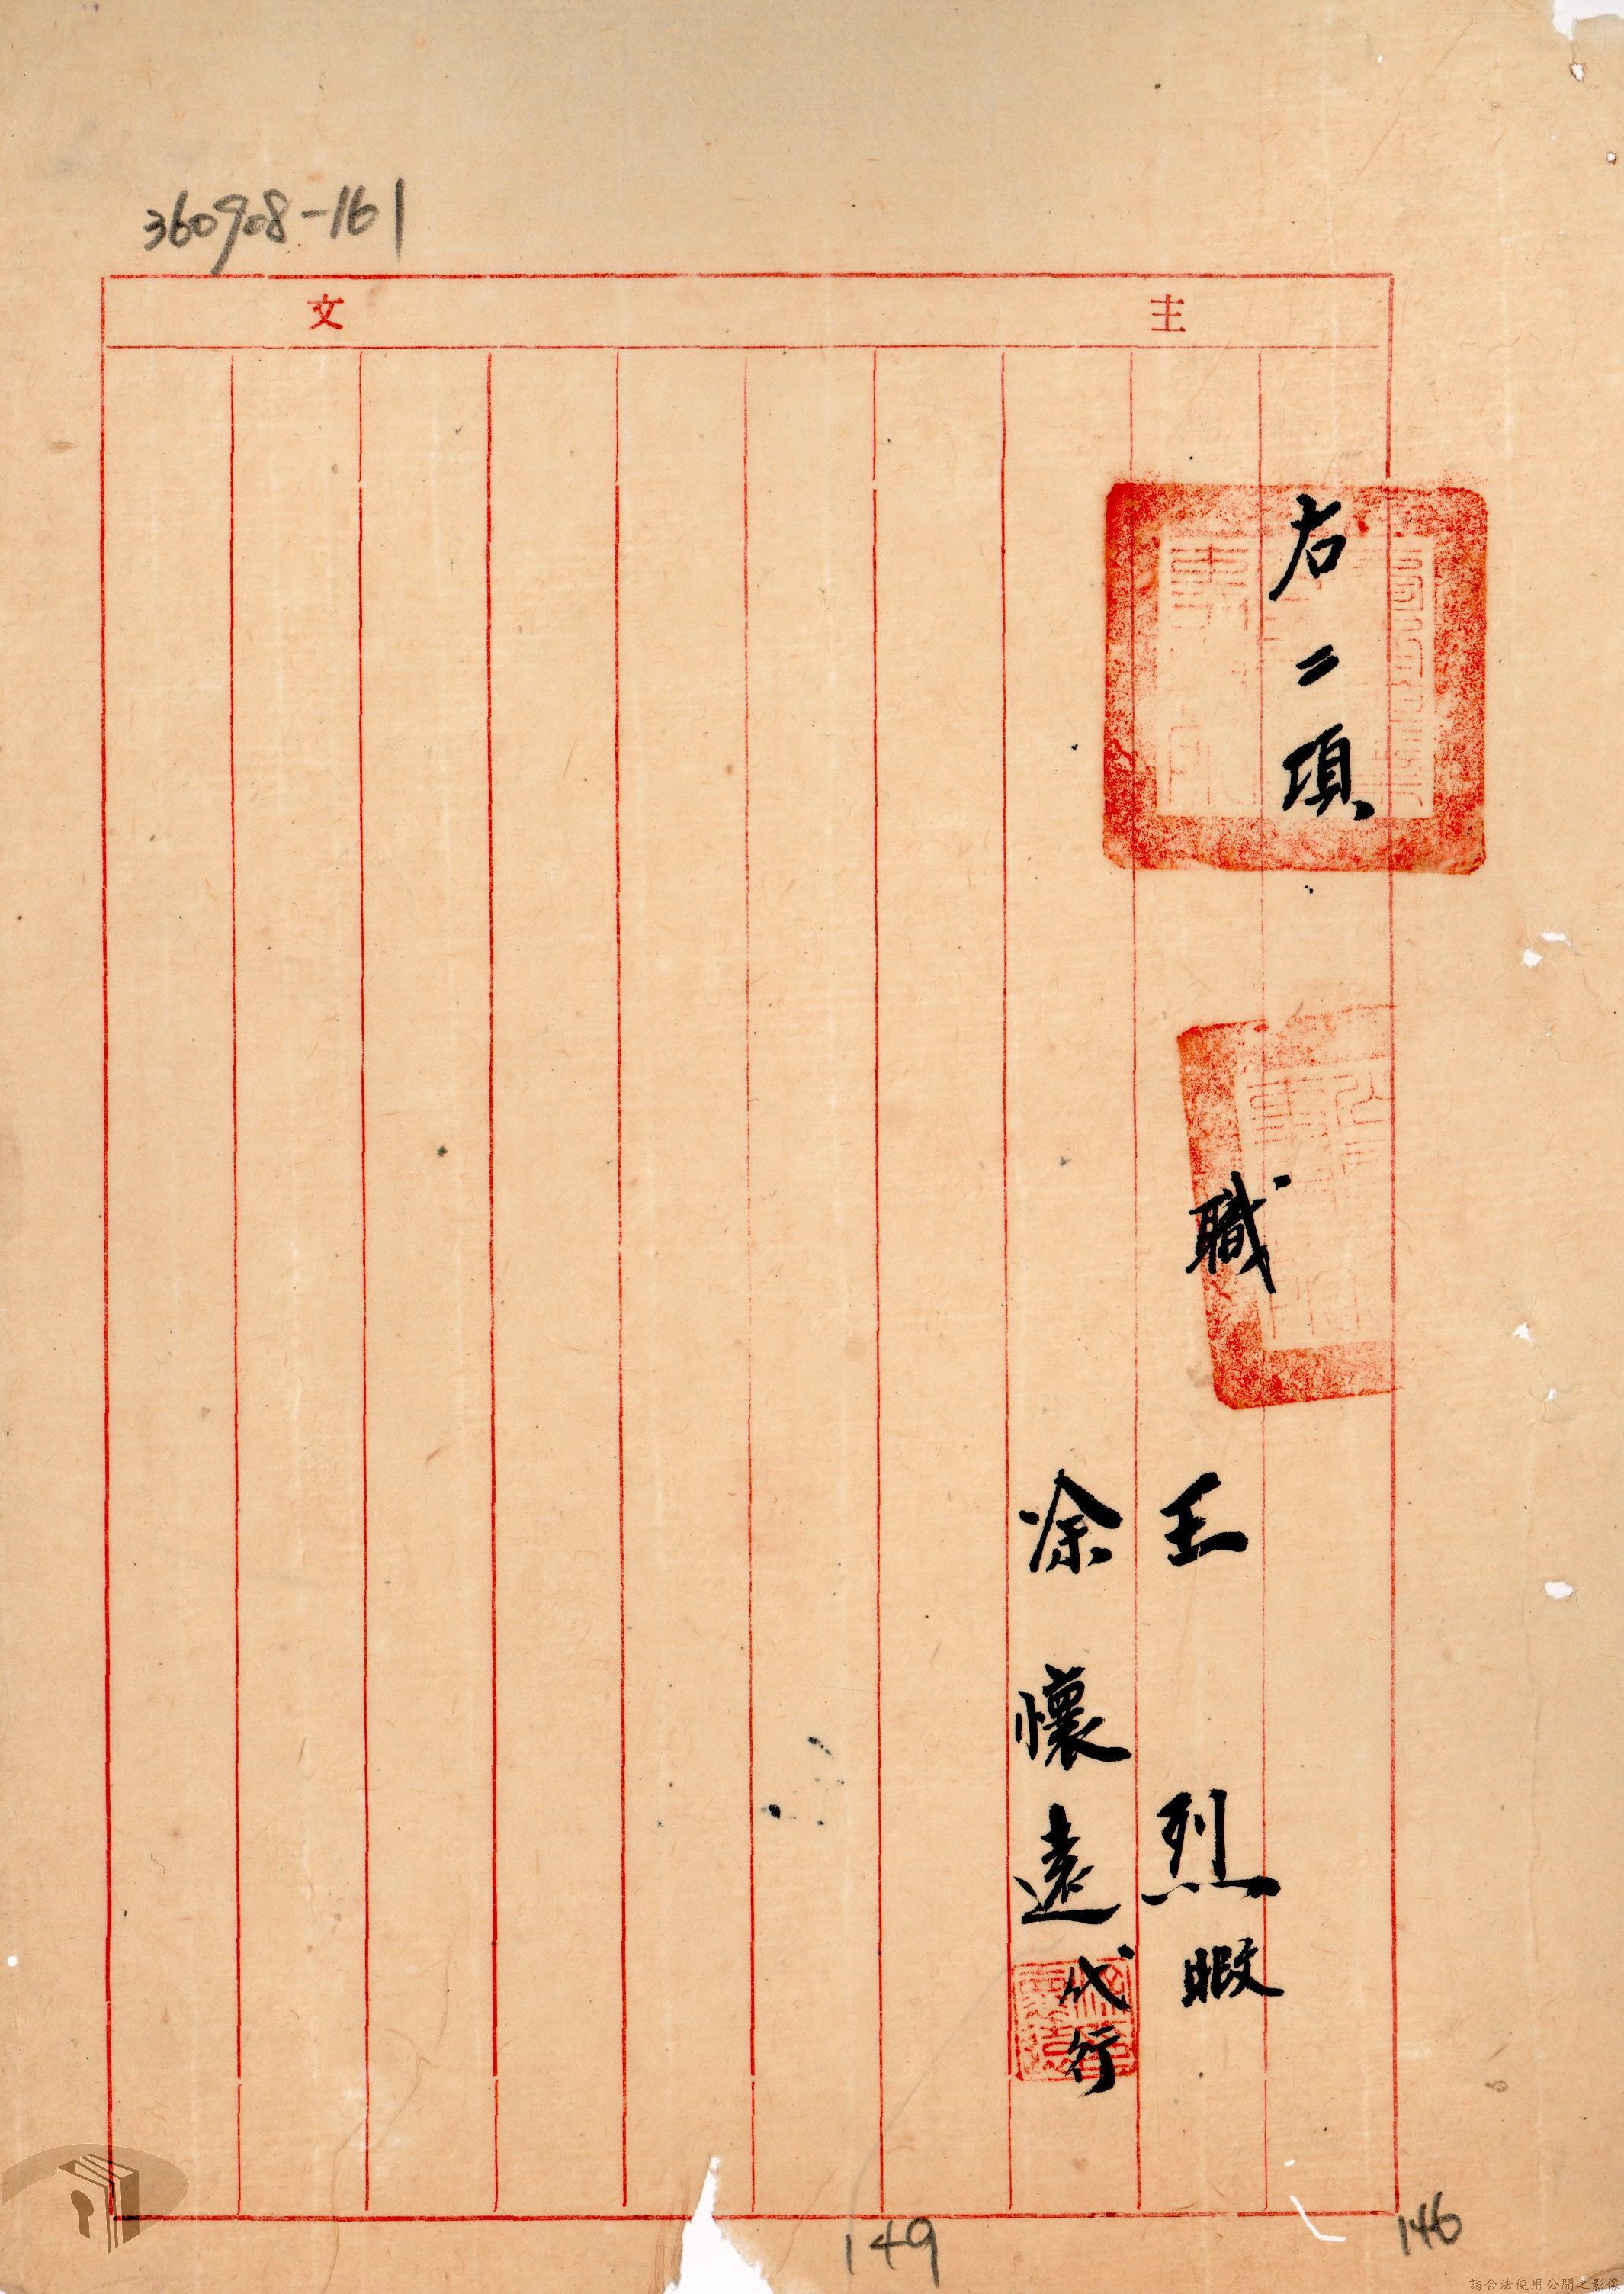 360908-161
主文
右二項
職
王烈暇
涂懷遠代行
149
146
請合法使用公開之影像